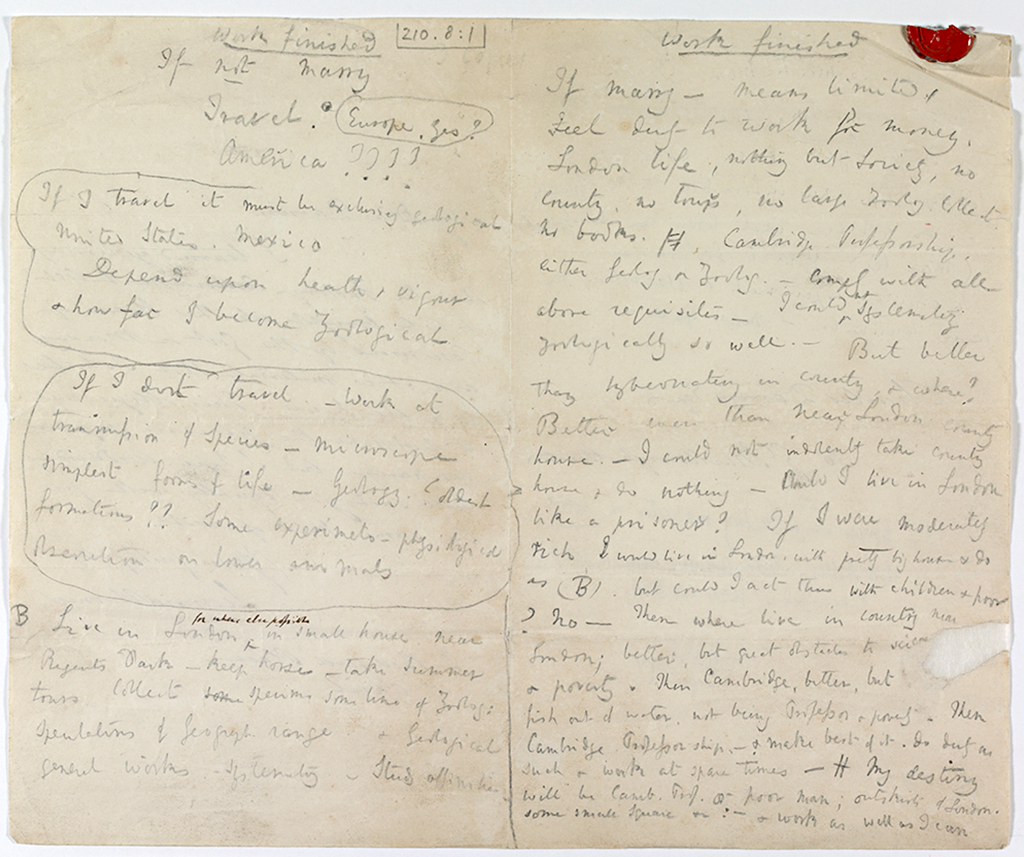 Work finished
210.8:1
If not marry
Travel. Europe, yes?
America ????
If I travel it must be exclusively geological
United States. Mexico
Depend upon health & vigour
& how far I become Zoological
If I dont travel — Work at
transmission of Species — microscope
simplest forms of life — Geology. ? oldest
formations?? Some experiments — physiological
observation on lower animals
for where else possible
B Live in London, in small house near
Regents Park — keep horse — take Summer
tours Collect some specimens some line of Zoolog:
Speculations of Geograph. range & Geological
general works — Systematiz — Study affinities
Work finished
If marry — means limited,
Feel duty to work for money.
London life, nothing but Society, no
country, no tours, no large Zoolog. Collect.
no books. Cambridge Professorship,
either Geolog. or Zoolog. — comply with all
above requisites — I could not systematiz
zoologically so well. — But better
than hybernating in country & where?
Better even than near London country
house. — I could not indolently take country
house & do nothing — Could I live in London
like a prisoner? If I were moderately
rich I would live in London, with pretty big house & do
as (B). but could I act thus with children & poor
? No — Then where live in country near
London; better, but great obstacles to
& poverty. Then Cambridge, better, but
fish out of water, not being Professor & poverty. Then
Cambridge Professorship, — & make best of it. do duty as
such & work at spare times — My destiny
will be Camb. Prof. or poor man; outskirts of London.
some small Square &c: — & work as well as I can